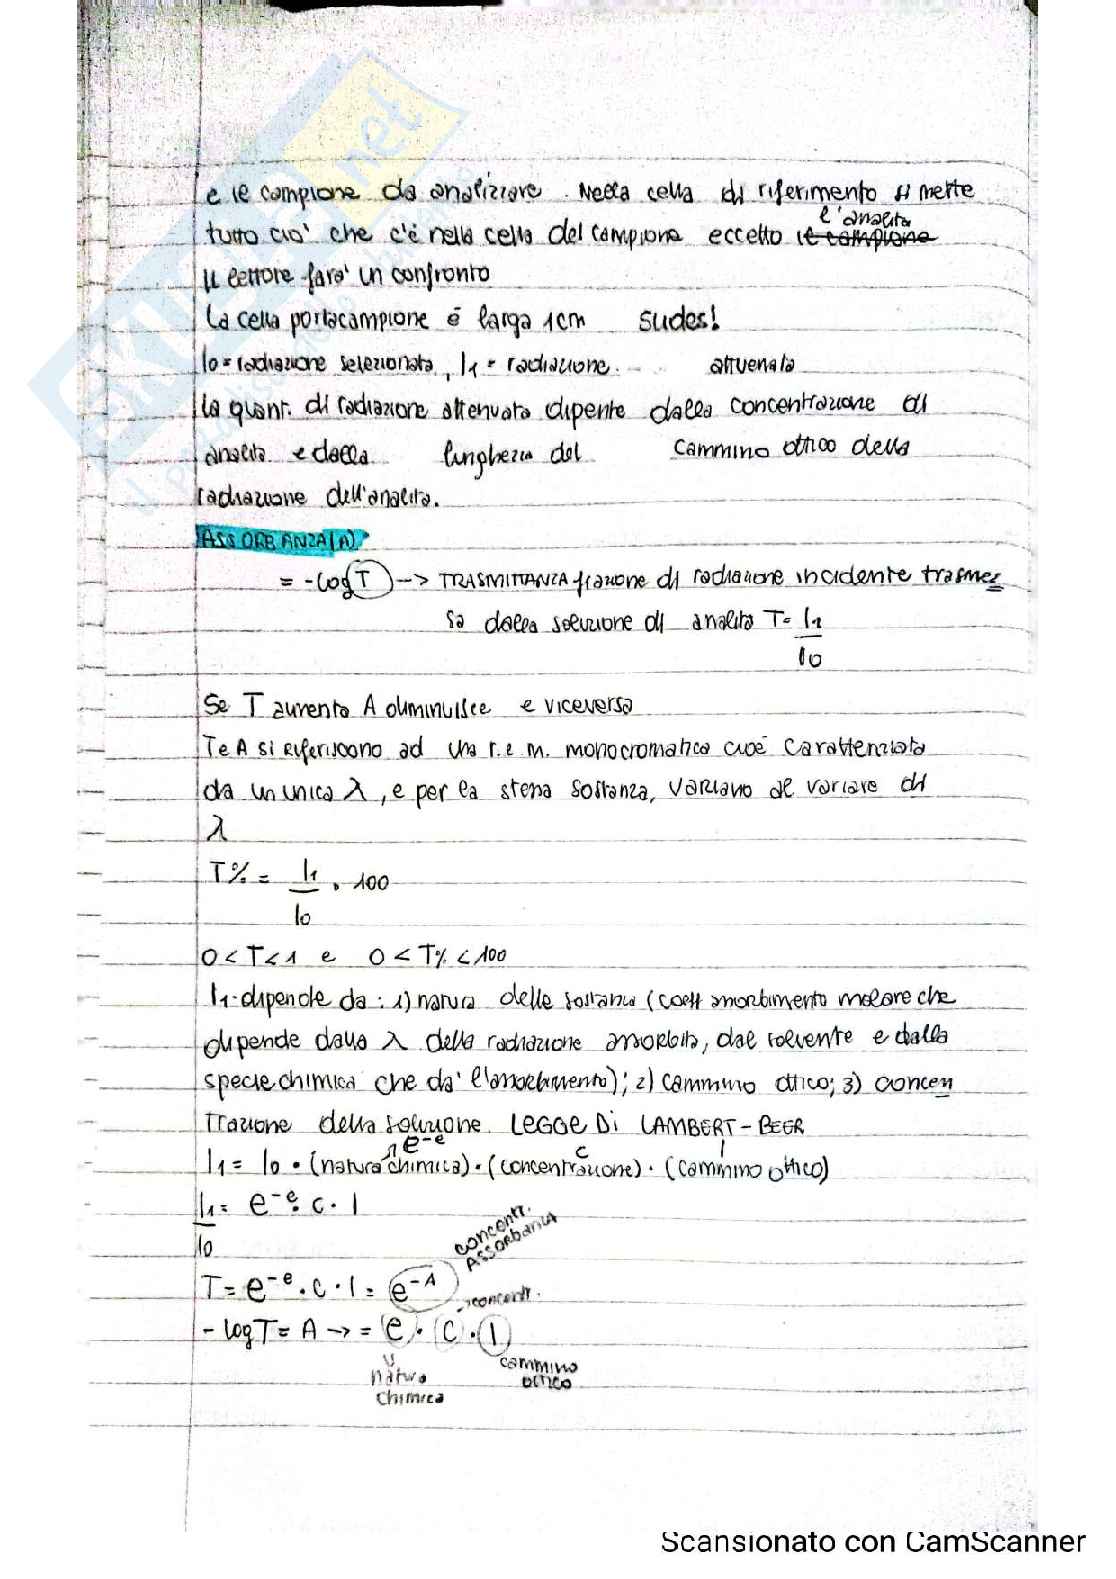 e le campione da analizzare. Nella cella di riferimento si mette
tutto ciò che c'è nella cella del campione eccetto il campione l'analita
Il lettore farà un confronto
La cella portacampione è larga 1cm sudes!
I0 = radiazione selezionata, I1 = radiazione attuenata
la quant. di radiazione attenuata dipente dalla concentrazione di
analita e dalla lunghezza del cammino ottico della
radiazione dell'analita.
ASSORBANZA(A)
= -log T --> TRASMITTANZA frazione di radiazione incidente trasmes
sa dalla soluzione di analita T= I1
I0
Se T aumenta A diminuisce e viceversa
T e A si riferiscono ad una r.e.m. monocromatica cioè caratterizzata
da un unica λ, e per la stessa sostanza, variano al variare di
λ
T% = I1 . 100
I0
0<T<1 e 0<T%<100
I1 dipende da: 1) natura delle sostanza (coeff assorbimento molare che
dipende dalla λ della radiazione assorbita, dal solvente e dalla
specie chimica che dà l'assorbimento); 2) cammino ottico; 3) concen
trazione della soluzione LEGGE Di LAMBERT-BEER
e-e c l
I1 = I0 • (natura chimica) • (concentrazione) • (cammino ottico)
I1 = e-e • c • l
I0
concentr.
ASSorbanza
T= e-e • c • l = e-A
concentr.
- logT = A -> = e • c • l
natura
chimica
cammino
ottico
Scansionato con CamScanner